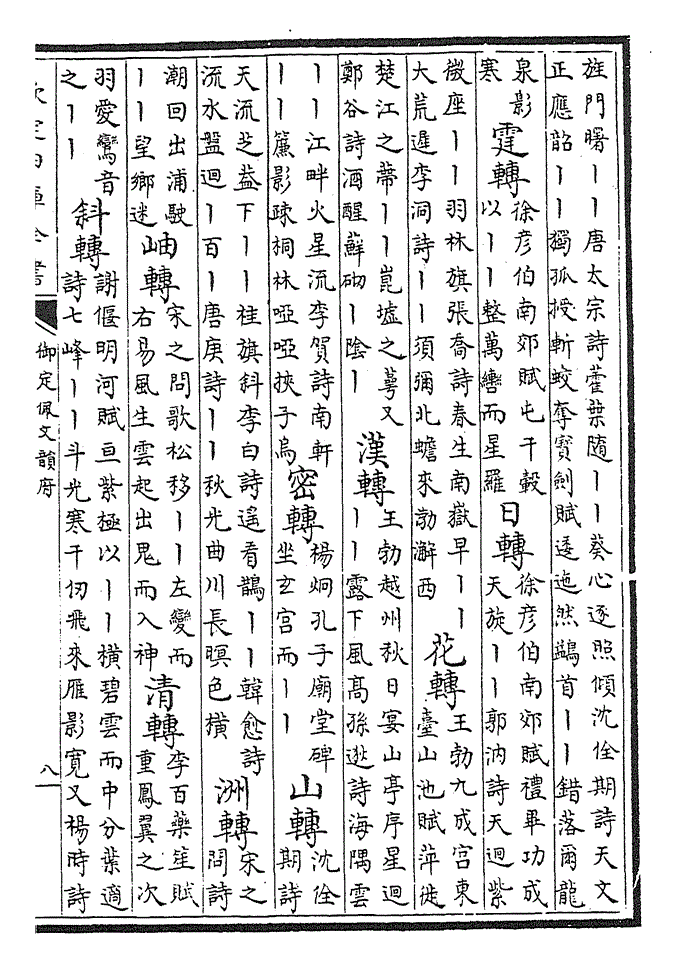 旌門曙丨丨唐太宗詩藿葉隨丨丨葵心逐照傾沈佺期詩天文
正應韶丨丨獨孤授斬蛟奪寶劍賦逶迤然鷁首丨丨錯落爾龍
泉影
寒
霆轉
徐彥伯南郊賦屯千轂
以丨丨整萬轡而星羅
日轉
徐彥伯南郊賦禮畢功成
天旋丨丨郭汭詩天迴紫
微座丨丨羽林旗張喬詩春生南嶽早丨丨
大荒遲李洞詩丨丨須彌北蟾來渤澥西
花轉
王勃九成宮東
臺山池賦萍徙
楚江之蔕丨丨崑墟之萼又
鄭谷詩酒醒蘚砌丨陰丨
漢轉
王勃越州秋日宴山亭序星迴
丨丨露下風高孫逖詩海隅雲
丨丨江畔火星流李賀詩南軒
丨丨簾影疎桐林啞啞挾子烏
密轉
楊炯孔子廟堂碑
坐玄宮而丨丨
山轉
沈佺
期詩
天流芝蓋下丨丨桂旗斜李白詩遙看鵲丨丨韓愈詩
流水盤迴丨百丨唐庚詩丨丨秋光曲川長暝色橫
洲轉
宋之
問詩
潮回出浦駛
丨丨望鄉迷
岫轉
宋之問歌松移丨丨左變而
右易風生雲起出鬼而入神
清轉
李百藥笙賦
重鳳翼之次
羽愛鸞音
之丨丨
斜轉
謝偃明河賦亘紫極以丨丨橫碧雲而中分葉適
詩七峰丨丨斗光寒千仞飛來雁影寬又楊時詩
欽定四庫全書
御定佩文韻府
八